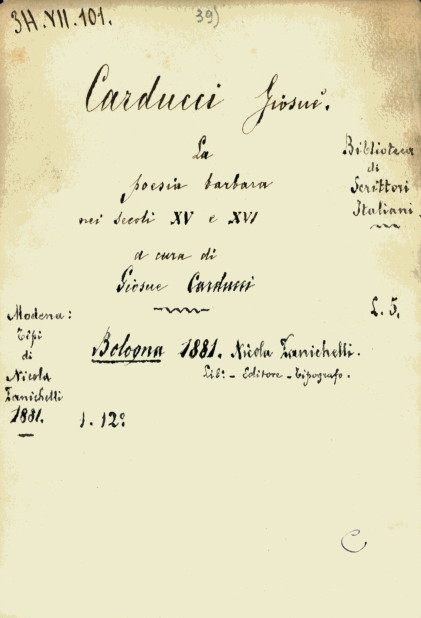 3H.VII.101.
39)
Carducci Giosuè.
La
poesia barbara
nei secoli XV e XVI
a cura di
Giosue Carducci
Biblioteca
di
Scrittori
Italiani
L. 5.
Modena:
Tipi
di
Nicola
Zanichelli
1881.
Bologna 1881. Nicola Zanichelli.
Lib.º - Editore - Tipografo.
1. 12º
C